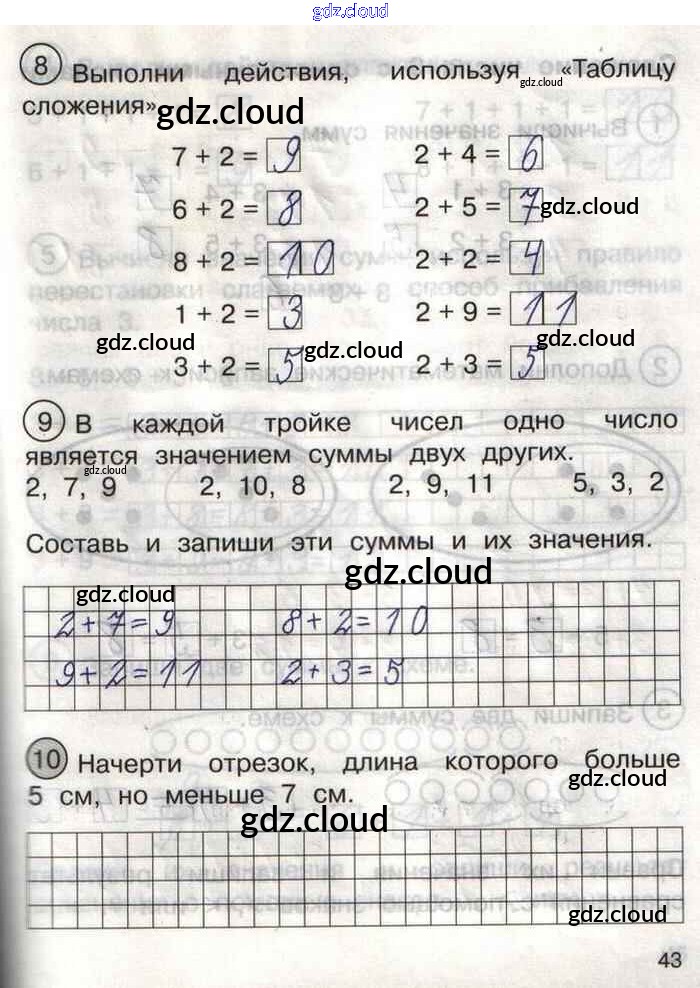 gdz.cloud
8 Выполни действия, используя gdz.cloud «Таблицу
сложения»
gdz.cloud
7 + 2 = 9 2 + 4 = 6
6 + 2 = 8 2 + 5 = 7 gdz.cloud
8 + 2 = 10 2 + 2 = 4
1 + 2 = 3 2 + 9 = 11
gdz.cloud gdz.cloud
3 + 2 = 5 2 + 3 = 5
9 В каждой тройке чисел одно число
является значением суммы двух других.
gdz.cloud
2, 7, 9 2, 10, 8 2, 9, 11 5, 3, 2
Составь и запиши эти суммы и их значения.
gdz.cloud
gdz.cloud
2 + 7 = 9 8 + 2 = 10
9 + 2 = 11 2 + 3 = 5
10 Начерти отрезок, длина которого больше
gdz.cloud
5 см, но меньше 7 см.
gdz.cloud
gdz.cloud
43